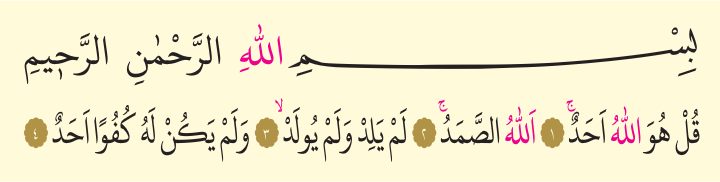 بِسْمِ اللّٰهِ الرَّحْمٰنِ الرَّح۪يمِ
قُلْ هُوَ اللّٰهُ اَحَدٌۚ ﴿١﴾ اَللّٰهُ الصَّمَدُۚ ﴿٢﴾ لَمْ يَلِدْ وَلَمْ يُولَدْۙ ﴿٣﴾ وَلَمْ يَكُنْ لَهُ كُفُوًا اَحَدٌ ﴿٤﴾